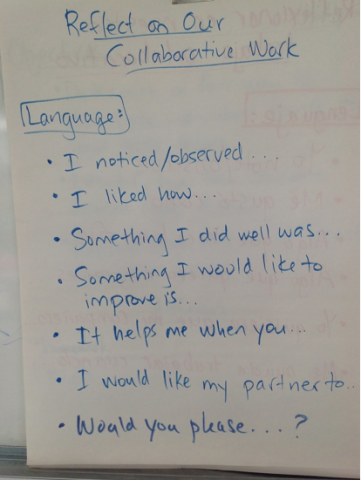 Reflect on Our
Collaborative Work
Language:
• I noticed/observed....
• I liked how...
• Something I did well was...
• Something I would like to
improve is...
• It helps me when you...
• I would like my partner to..
• Would you please....?